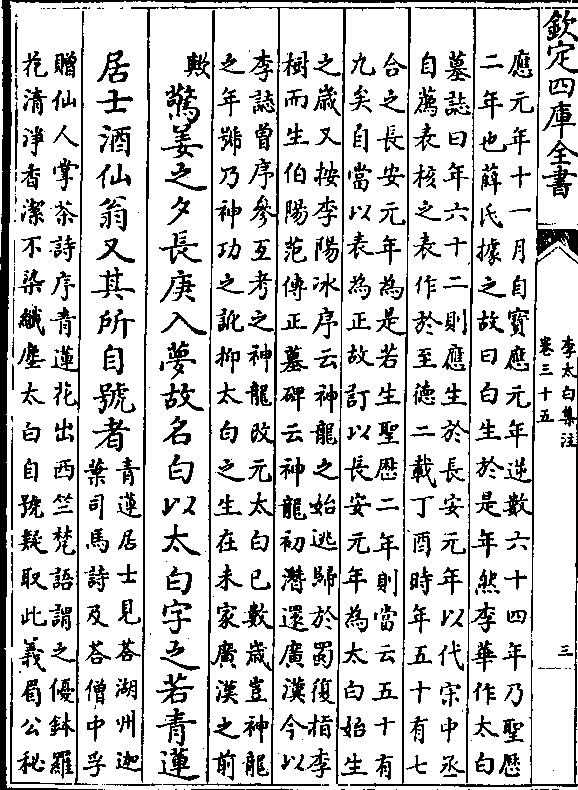 欽定四庫全書
李太白集注
卷三十五
三
應元年十一月自寳應元年逆數六十四年乃聖歴
二年也薛氏據之故曰白生於是年然李華作太白
墓誌曰年六十二則應生於長安元年以代宋中丞
自薦表核之表作於至德二載丁酉時年五十有七
合之長安元年為是若生聖歴二年則當云五十有
九矣自當以表為正故訂以長安元年為太白始生
之歲又按李陽冰序云神龍之始逃歸於蜀復指李
樹而生伯陽范傳正墓碑云神龍初潛還廣漢今以
李誌曽序參互考之神龍改元太白已數歲豈神龍
之年號乃神功之訛抑太白之生在未家廣漢之前
歟
驚姜之夕長庚入夢故名白以太白字之若青蓮
居士酒仙翁又其所自號者
青蓮居士見荅湖州迦
葉司馬詩及荅僧中孚
贈仙人掌茶詩序青蓮花出西竺梵語謂之優鉢羅
花清淨香潔不染纖塵太白自號疑取此義蜀公秘